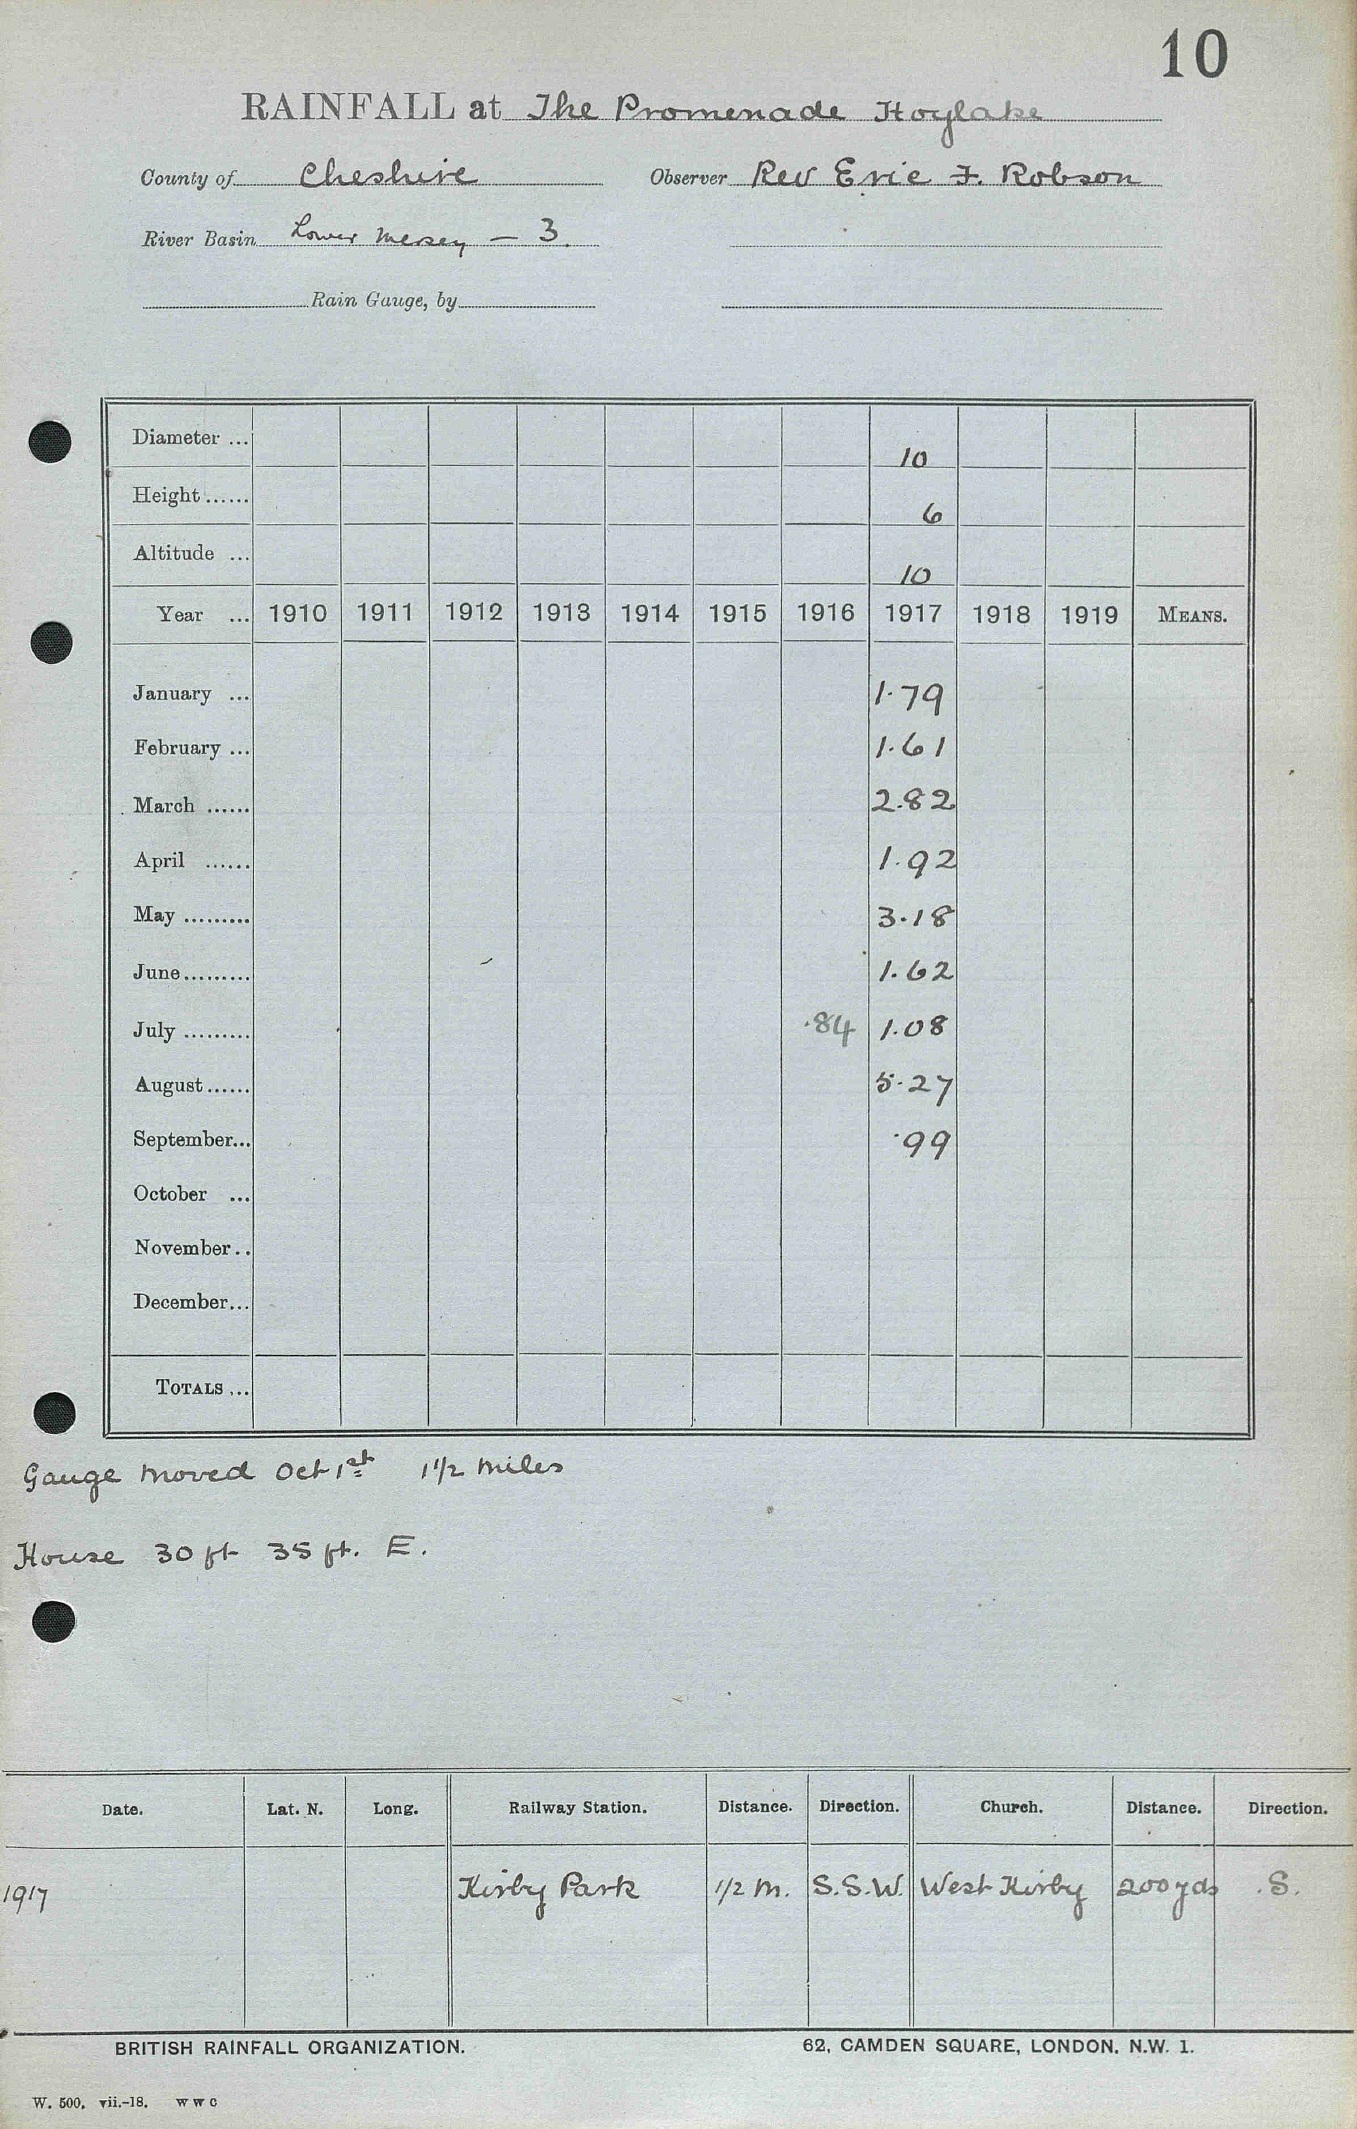 10
RAINFALL at The Promenade Hoylake
County of Cheshire Observer Rev Eric F. Robson
River Basin Lower Mersey — 3.
Rain Gauge, by
Diameter ... 10
Height ...... 6
Altitude ... 10
Year ... 1910 1911 1912 1913 1914 1915 1916 1917 1918 1919 MEANS.
January ... 1.79
February ... 1.61
March ...... 2.82
April ...... 1.92
May ......... 3.18
June ......... 1.62
July ......... .84 1.08
August ...... 5.27
September... .99
October ...
November ..
December...
TOTALS ...
Gauge moved Oct 1st 1 1/2 miles
House 30 ft 35 ft. E.
Date. Lat. N. Long. Railway Station. Distance. Direction. Church. Distance. Direction.
1917 Kirby Park 1/2 m. S.S.W. West Kirby 200 yds S.
BRITISH RAINFALL ORGANIZATION. 62, CAMDEN SQUARE, LONDON. N.W. 1.
W. 500. vii.-18. W W C